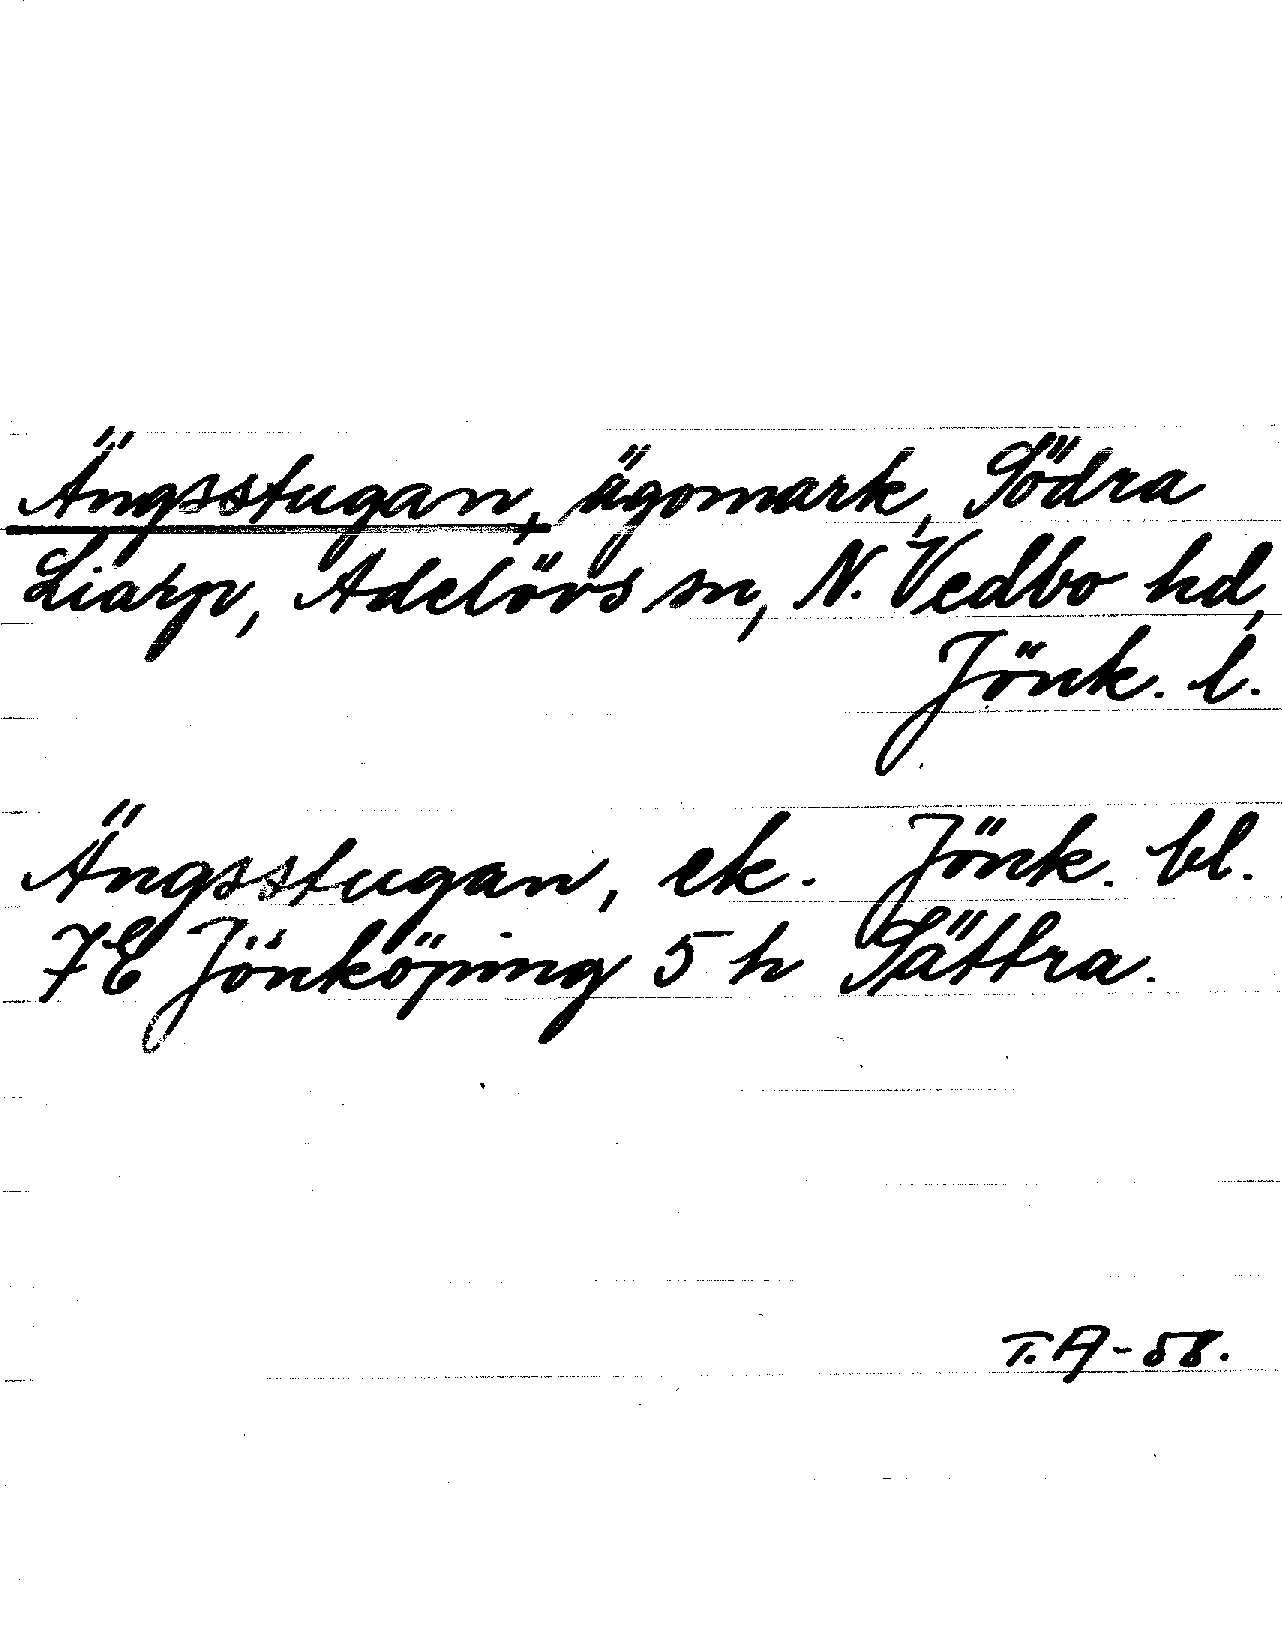 Ängsstugan, ägomark, Södra
Liarp, Adelövs sn, N. Vedbo hd,
Jönk. l.
Ängsstugan, ek. Jönk. bl.
7E Jönköping 5 h Sättra.
T.A-58.